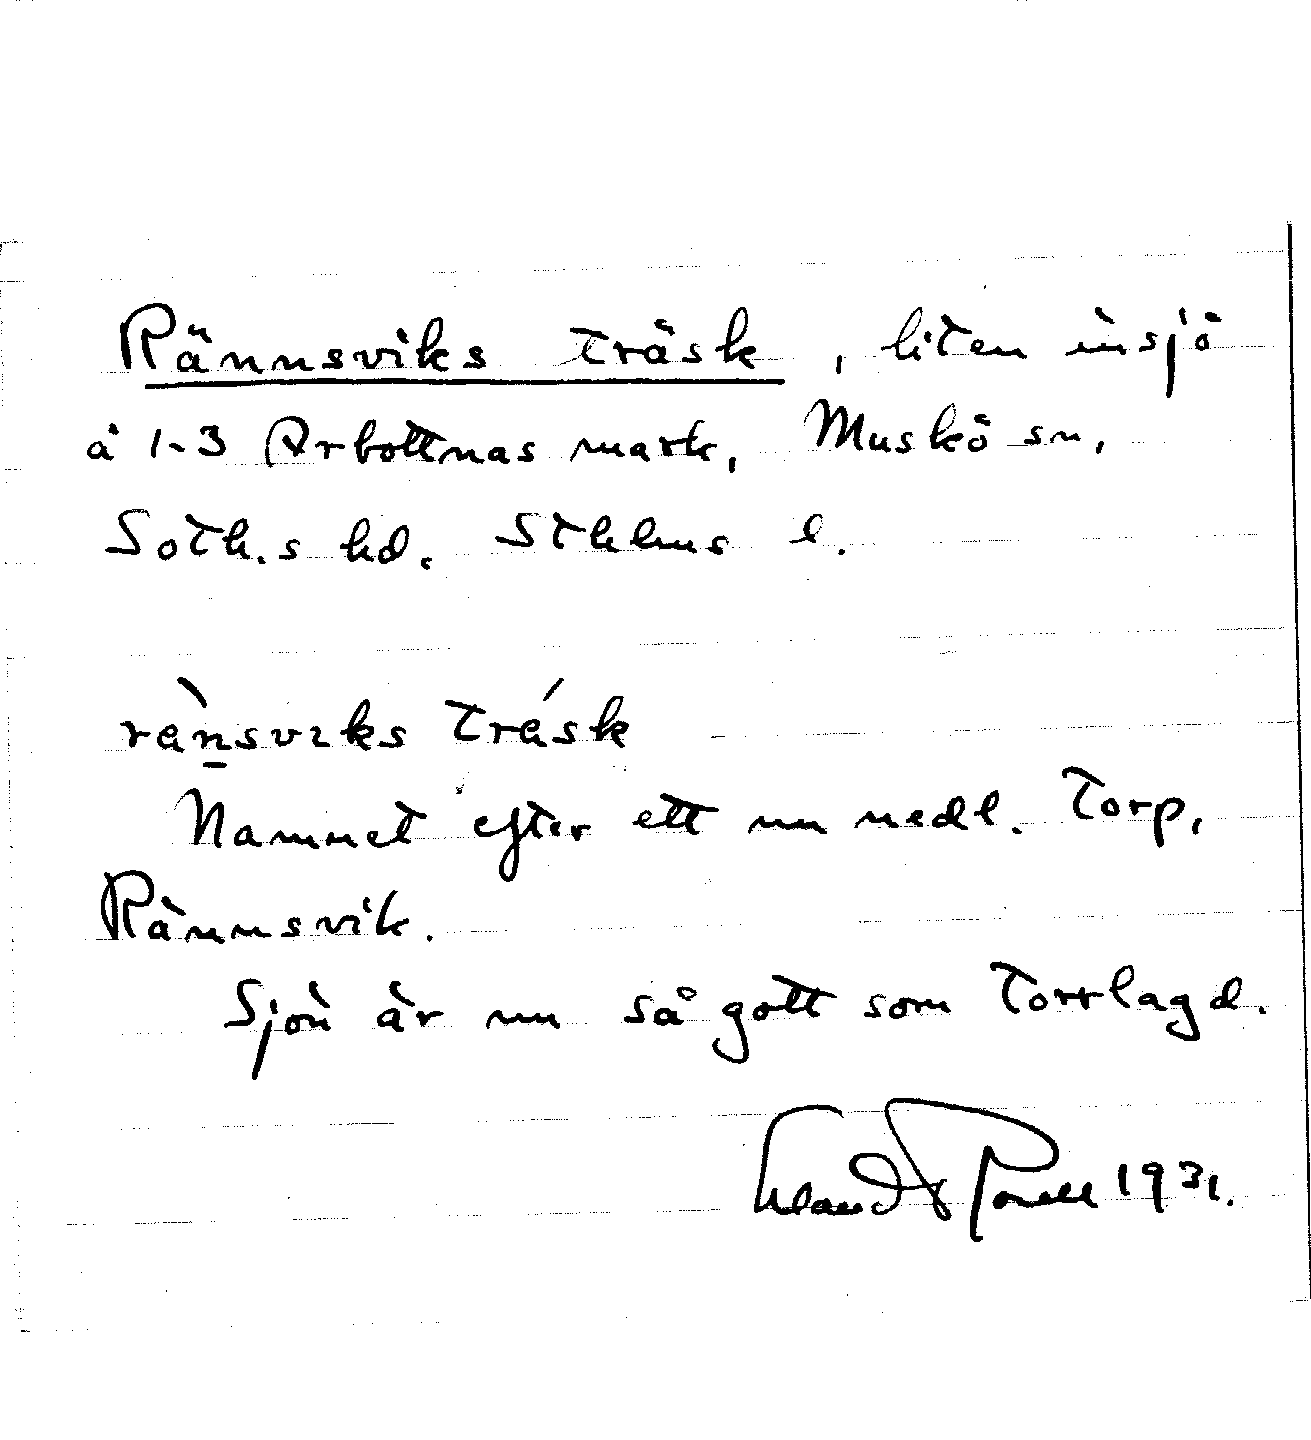 Rännsviks träsk, liten insjö
å 1-3 Arbottnas mark, Muskö sn,
Soth.s hd. Sthlms l.
rànsvıks trásk
Namnet efter ett nu nedl. torp,
Rännsvik.
Sjön är nu så gott som torrlagd.
1931.